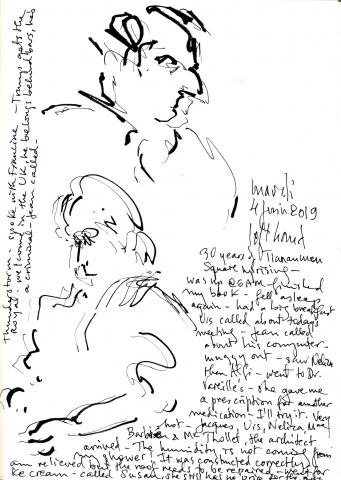 Thunderstorm - spoke with Francine - Trump gets the
Royal welcome in the UK, he belongs behind bars, he's
a criminal - Jean called -
mardi
4 juin 2019
left hand
30 years of Tiananmen
Square uprising -
was up @ 6AM - finished
my book - fell asleep
again - had a long breakfast
Urs called about todays
meeting - Jean called
about his computer -
muggy out - saw Neliza
then Alfi - went to Dr.
Vareille's - she gave me
a prescription for another
medication - I'll try it. Very
hot - Jacques, Urs, Neliza, Mme
Barbara & Mc Thollet, the architect
arrived - The humidity is not coming from
my shower! It was constructed correctly. I
am relieved but the roof needs to be repaired - went for
ice cream - called Susan, she still has no